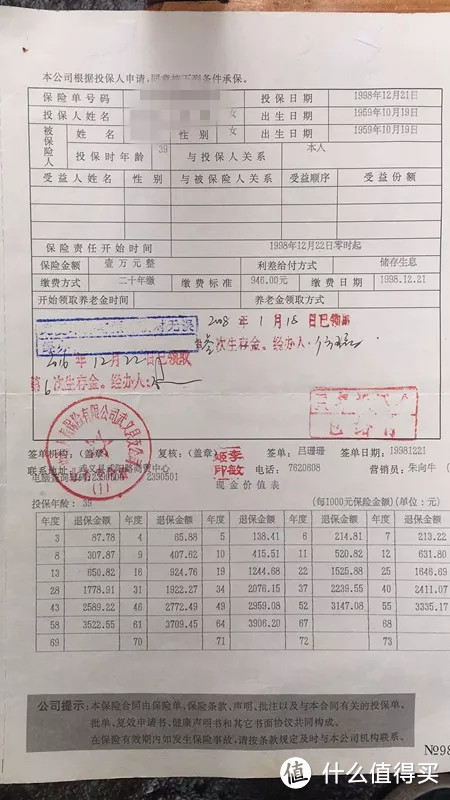 本公司根据投保人申请,同意按下列条件承保。
保险单号码 投保日期 1998年12月21日
投保人姓名 女 出生日期 1959年10月19日
被保险人 姓名 性别 女 出生日期 1959年10月19日
投保时年龄 39 与投保人关系 本人
受益人姓名 性别 与被保险人关系 受益顺序 受益份额
保险责任开始时间 1998年12月22日零时起
保险金额 壹万元整 利差给付方式 储存生息
缴费方式 二十年缴 缴费标准 946.00元 缴费日期 1998.12.21
开始领取养老金时间 养老金领取方式
2008年1月18日已领取
次生存金。经办人:
2016年12月22日已领取
第6次生存金。经办人:
签单机构:(盖章) 复核:(盖章) 签单:吕珊珊 签单日期:19981221
联系地址: 电话:7620808 营销员:朱向牛
2390501
现金价值表
投保年龄:39 (每1000元保险金额)(单位:元)
年度 退保金额 年度 退保金额 年度 退保金额 年度 退保金额 年度 退保金额
3 87.78 4 65.88 5 138.41 6 214.81 7 213.22
8 307.87 9 407.62 10 415.51 11 520.82 12 631.80
13 650.82 16 924.76 19 1244.68 22 1525.88 25 1646.69
28 1778.91 31 1922.27 34 2076.15 37 2239.55 40 2411.07
43 2589.22 46 2772.49 52 2959.08 52 3147.08 55 3335.17
58 3522.55 61 3709.45 64 3906.20 67 68
69 70 71 72 73
公司提示:本保险合同由保险单、保险条款、声明、批注以及与本合同有关的投保单、
批单、复效申请书、健康声明书和其它书面协议共同构成。
在保险有效期内如发生保险事故,请按条款规定及时与本公司机构联系。
№98
值 什么值得买